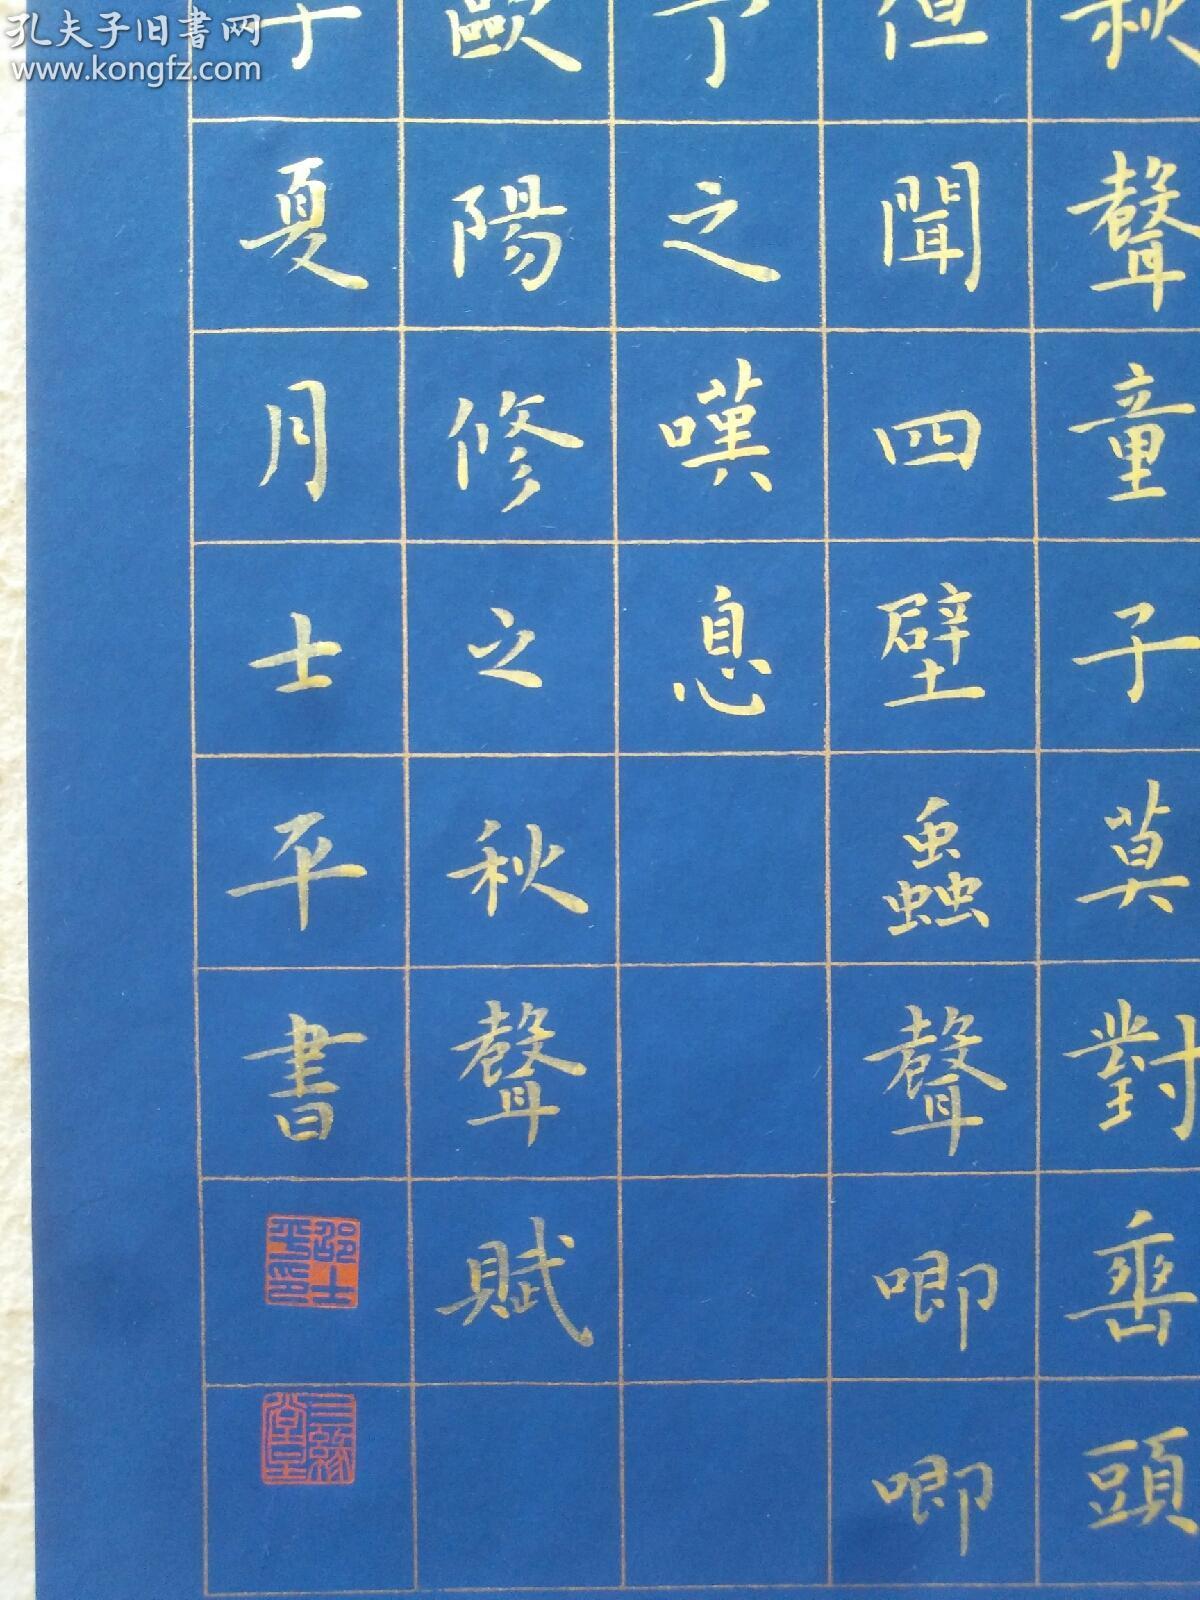 孔夫子旧書网
www.kongfz.com
秋聲童子莫對垂頭
但聞四壁蟲聲唧唧
予之嘆息
歐陽修之秋聲賦
夏月士平書
邵士平印
三緣堂主